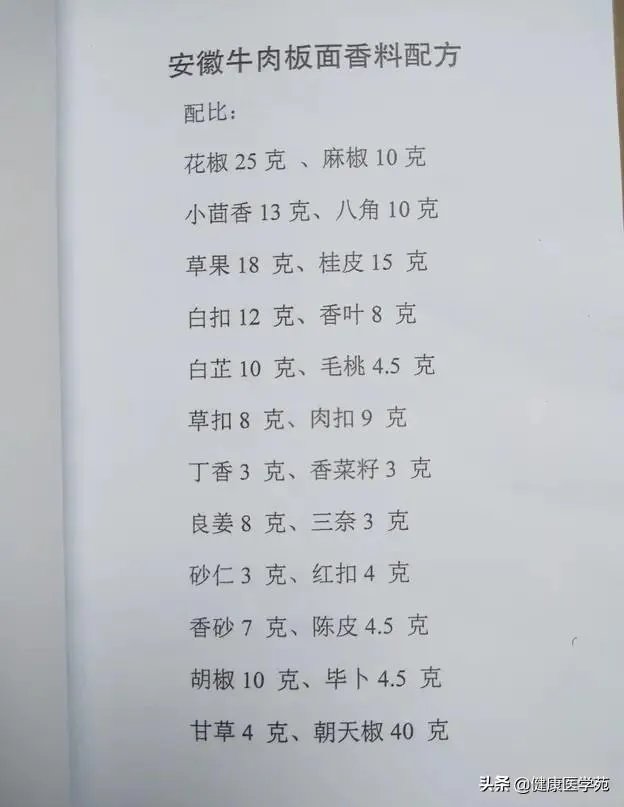 安徽牛肉板面香料配方
配比：
花椒 25 克 、麻椒 10 克
小茴香 13 克、八角 10 克
草果 18 克、桂皮 15 克
白扣 12 克、香叶 8 克
白芷 10 克、毛桃 4.5 克
草扣 8 克、肉扣 9 克
丁香 3 克、香菜籽 3 克
良姜 8 克、三奈 3 克
砂仁 3 克、红扣 4 克
香砂 7 克、陈皮 4.5 克
胡椒 10 克、毕卜 4.5 克
甘草 4 克、朝天椒 40 克
头条 @健康医学苑